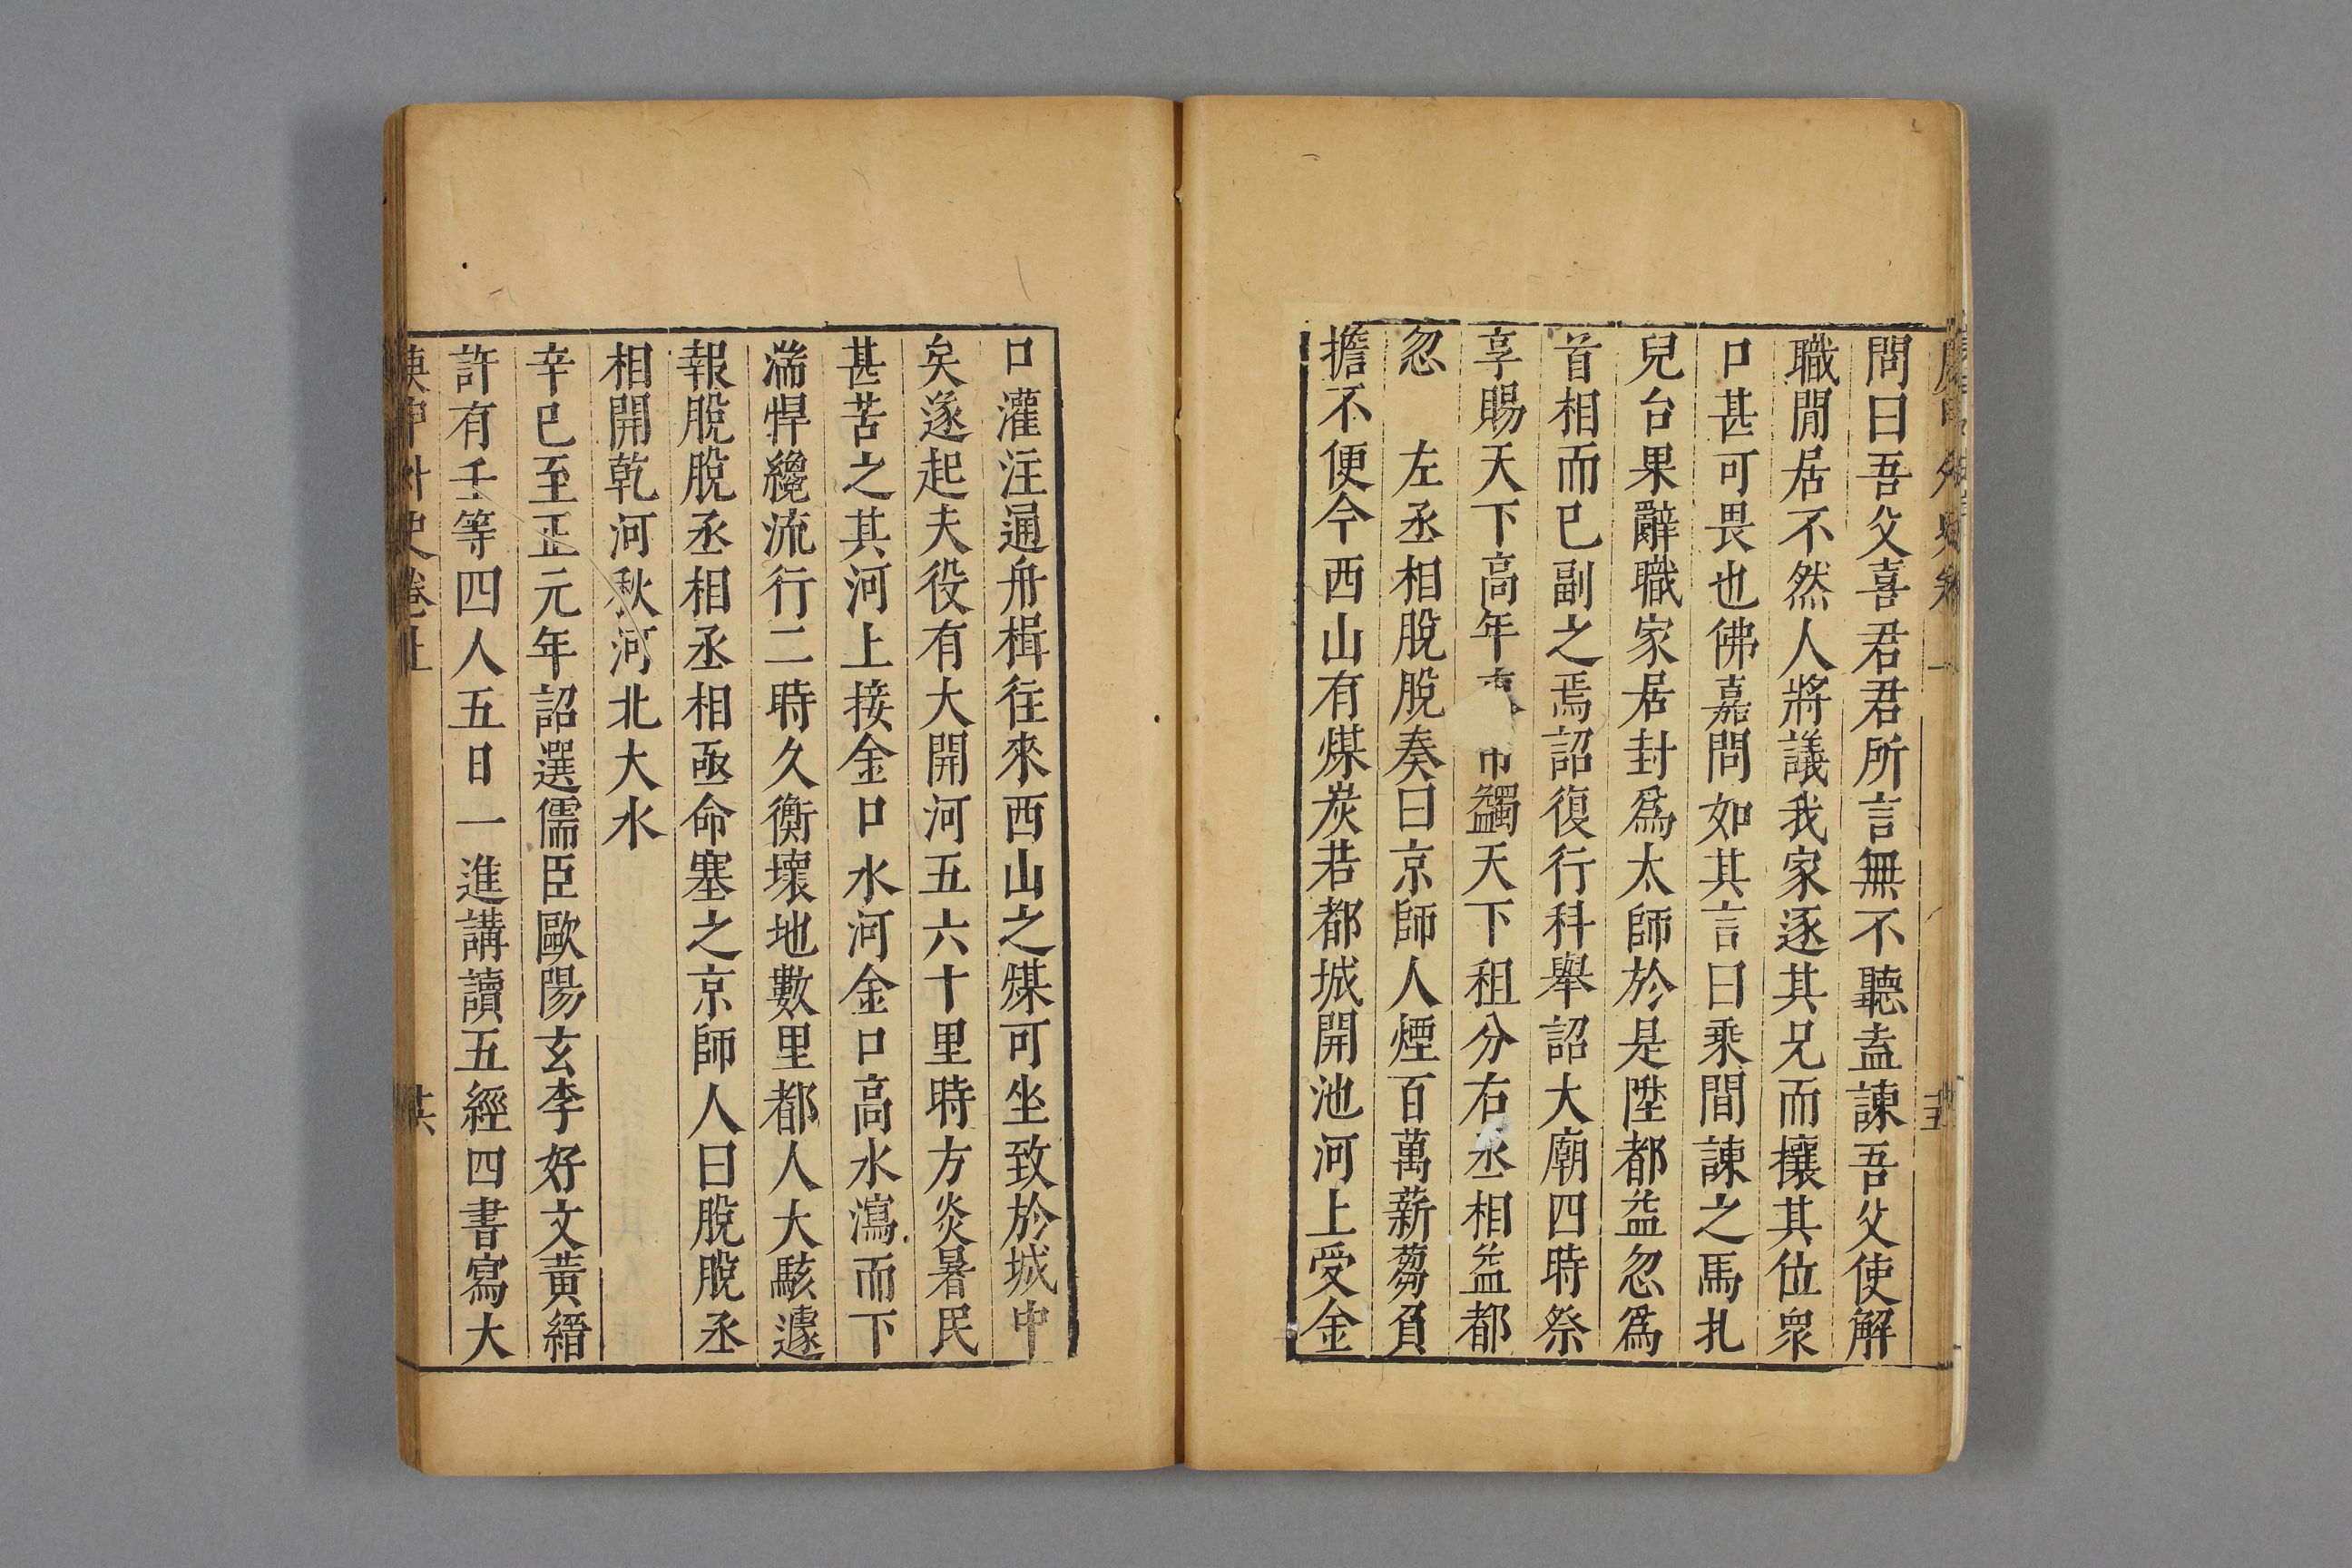 問曰吾父喜君君所言無不聽盍諫吾父使解
職閒居不然人將議我家逐其兄而攘其位衆
口甚可畏也佛嘉問如其言曰乘間諫之馬扎
兒台果辭職家居封爲太師於是陞都益忽爲
首相而已副之焉詔復行科舉詔大廟四時祭
享賜天下高年帛蠲天下租分右丞相益都
忽　左丞相脫脫奏曰京師人煙百萬薪蒭負
擔不便今西山有煤炭若都城開池河上受金
口灌注通舟楫往來西山之煤可坐致於城中
矣遂起夫役有大開河五六十里時方炎暑民
甚苦之其河上接金口水河金口高水瀉而下
湍悍纔流行二時久衝壞地數里都人大駭遽
報脫脫丞相丞相亟命塞之京師人曰脫脫丞
相開乾河秋河北大水
辛巳至正元年詔選儒臣歐陽玄李好文黃縉
許有壬等四人五日一進講讀五經四書寫大
庚申外史卷上